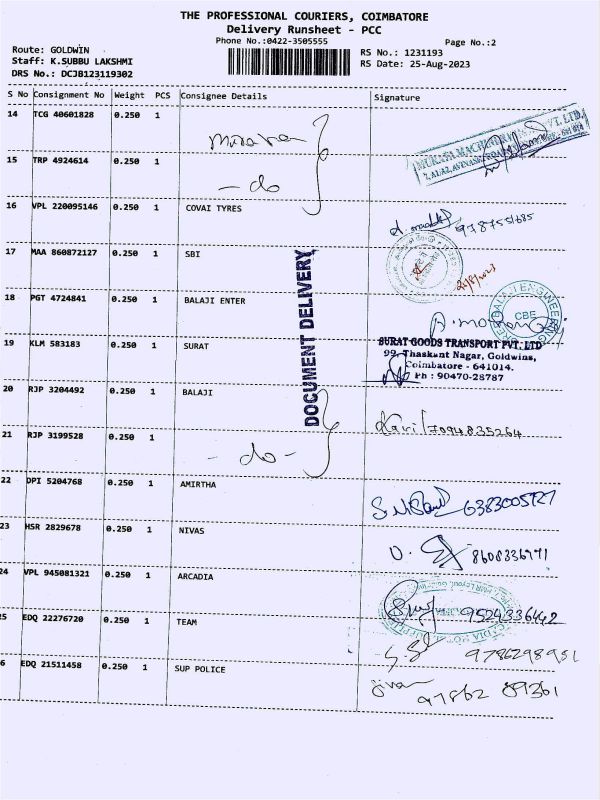 THE PROFESSIONAL COURIERS, COIMBATORE
Delivery Runsheet - PCC
Phone No.:0422-3505555
Page No.:2
Route: GOLDWIN
Staff: K.SUBBU LAKSHMI
DRS No.: DCJB123119302
RS No.: 1231193
RS Date: 25-Aug-2023
S No Consignment No Weight PCS Consignee Details Signature
14 TCG 40601828 0.250 1
15 TRP 4924614 0.250 1
- do
16 VPL 220095146 0.250 1 COVAI TYRES
9787551685
17 MAA 860872127 0.250 1 SBI
18 PGT 4724841 0.250 1 BALAJI ENTER
CBE
DOCUMENT DELIVERY
19 KLM 583183 0.250 1 SURAT
SURAT GOODS TRANSPORT PVT. LTD
99, Thaskant Nagar, Goldwins,
Coimbatore - 641014.
Ph : 90470-28787
20 RJP 3204492 0.250 1 BALAJI
7094835264
21 RJP 3199528 0.250 1
- do -
22 DPI 5204768 0.250 1 AMIRTHA
23 HSR 2829678 0.250 1 NIVAS
8608336971
24 VPL 945081321 0.250 1 ARCADIA
9524336442
5 EDQ 22276720 0.250 1 TEAM
9786298951
6 EDQ 21511458 0.250 1 SUP POLICE
97862 89361